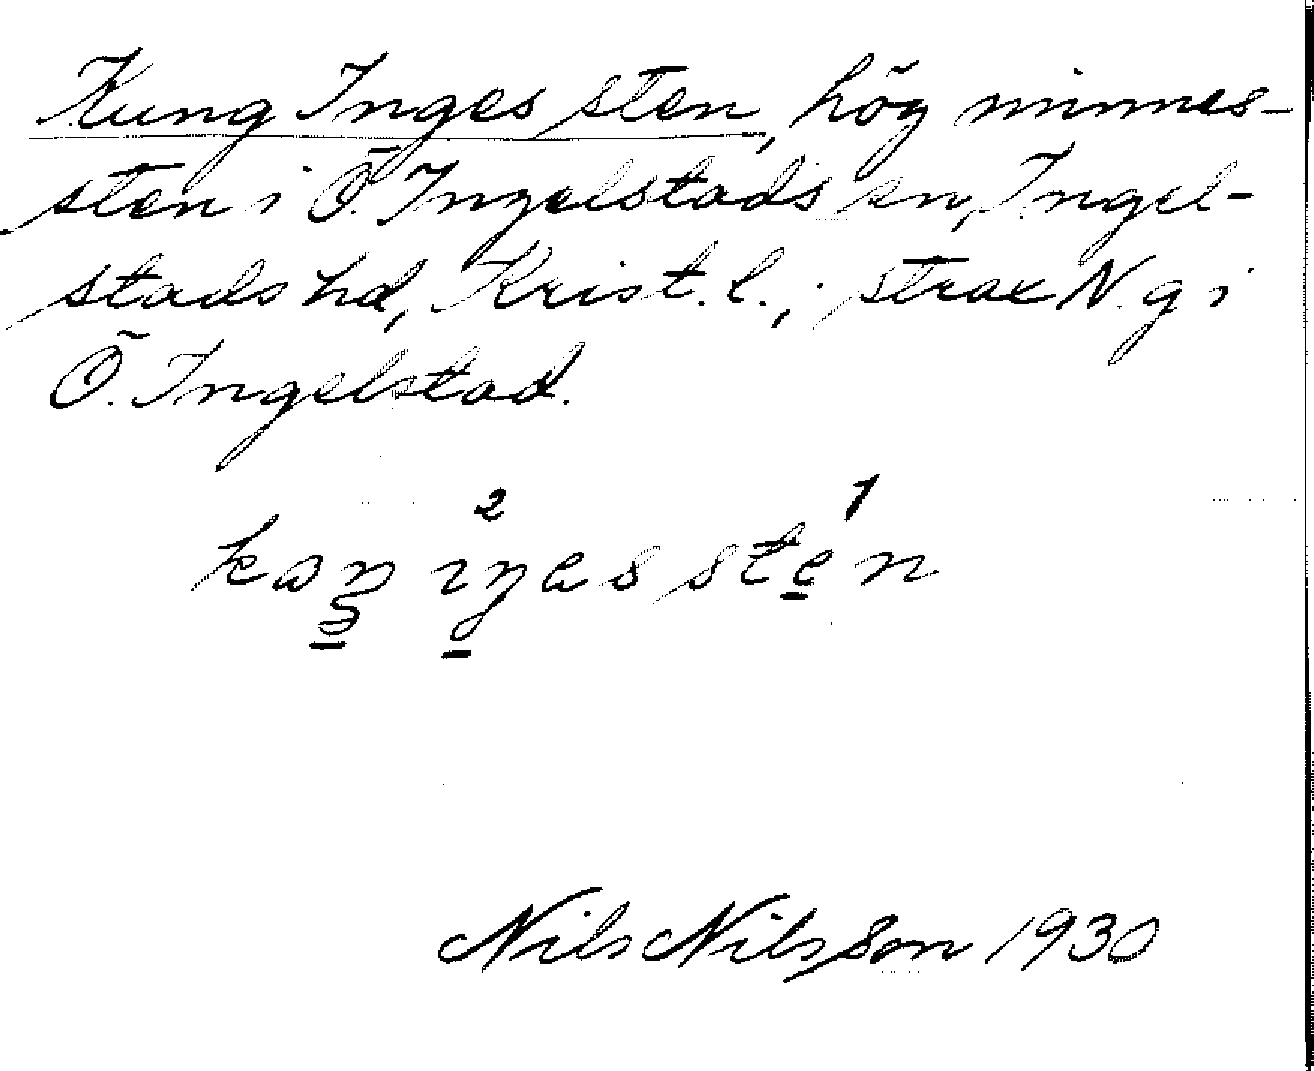 Kung Inges sten, hög minnes-
sten i Ö. Ingelstads sn, Ingel-
stads hd, Krist. l.; strax N. g i
Ö. Ingelstad.
2 1
kaŋ iŋəs stēn
Nils Nilsson 1930